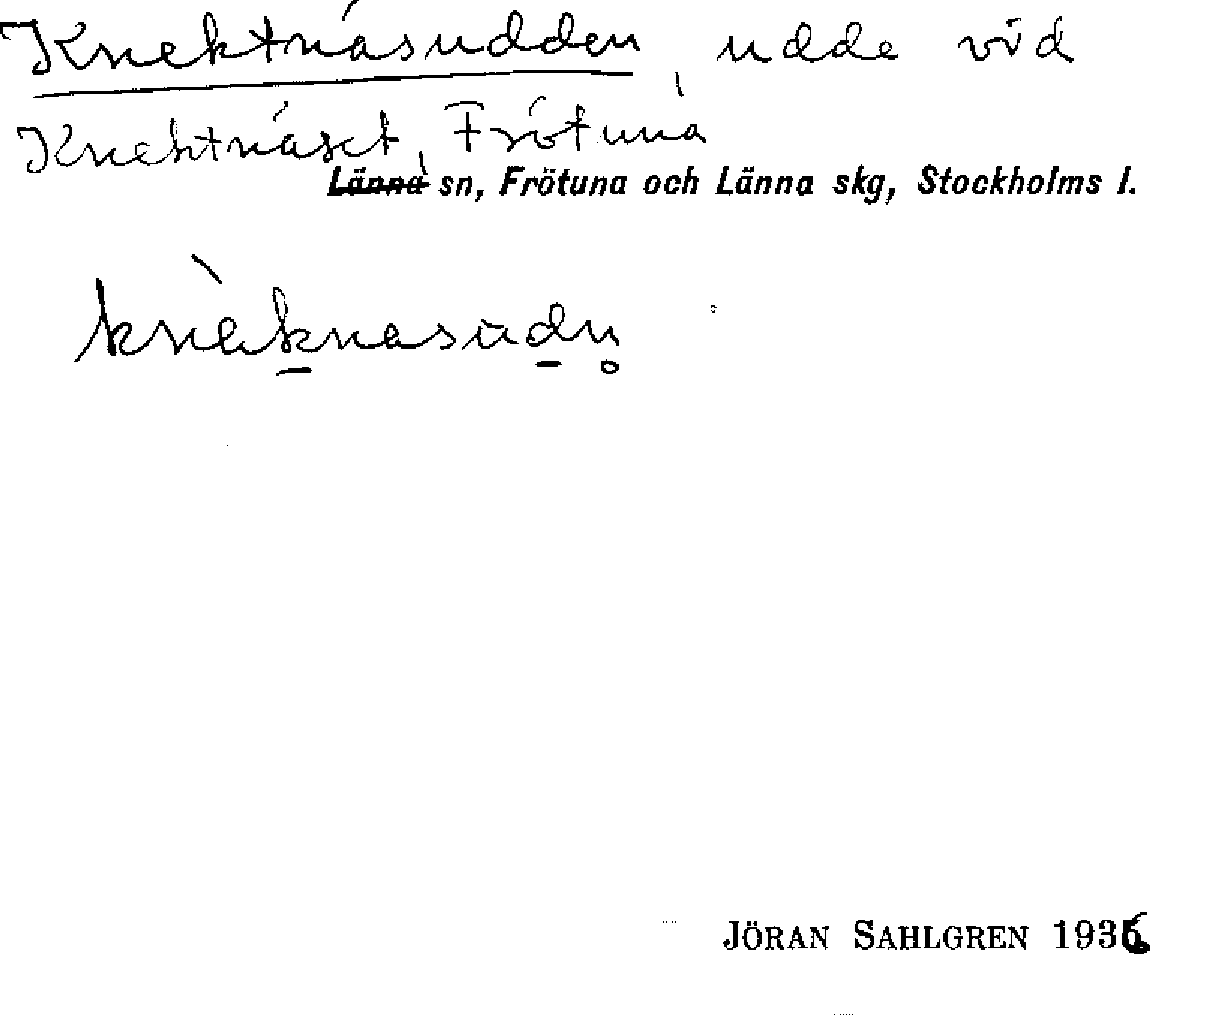 Knektnäsudden, udde vid
Knektnäset, Frötuna
Länna sn, Frötuna och Länna skg, Stockholms l.
JÖRAN SAHLGREN 1936